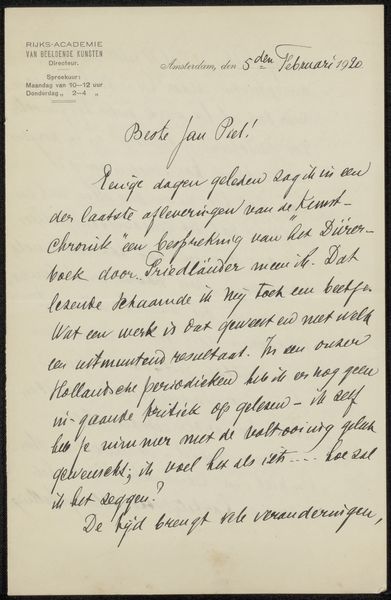 RIJKS-ACADEMIE
VAN BEELDENDE KUNSTEN
Directeur.
Spreekuur:
Maandag van 10–12 uur
Donderdag „ 2–4 „
Amsterdam, den 5den Februari 1920
Beste Jan Piet!
Eenige dagen geleden zag ik in een
der laatste afleveringen van de "Kunst-
chronik" een bespreking van "het Dürer-
boek door Friedländer meen ik. Dat
lezende schaamde ik mij toch een beetje
Wat een werk is dat geweest en met welk
een uitmuntend resultaat. In een onzer
Hollandsche periodieken heb ik er nog geen
in-gaande kritiek op gelezen – ik zelf
heb je nimmer met de voltooiing geluk
gewenscht; ik voel het als iets .... hoe zal
ik het zeggen?
De tijd brengt vele veranderingen,